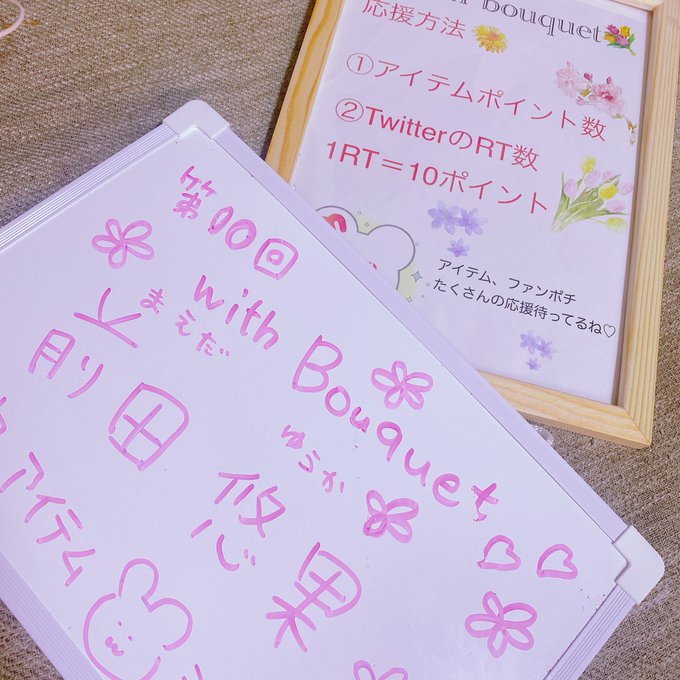 bouquet
応援方法
①アイテムポイント数
②TwitterのRT数
1RT＝10ポイント
アイテム、ファンポチ
たくさんの応援待ってるね♡
第10回
with Bouquet
まえだ ゆうか
前田 悠果
アイテム